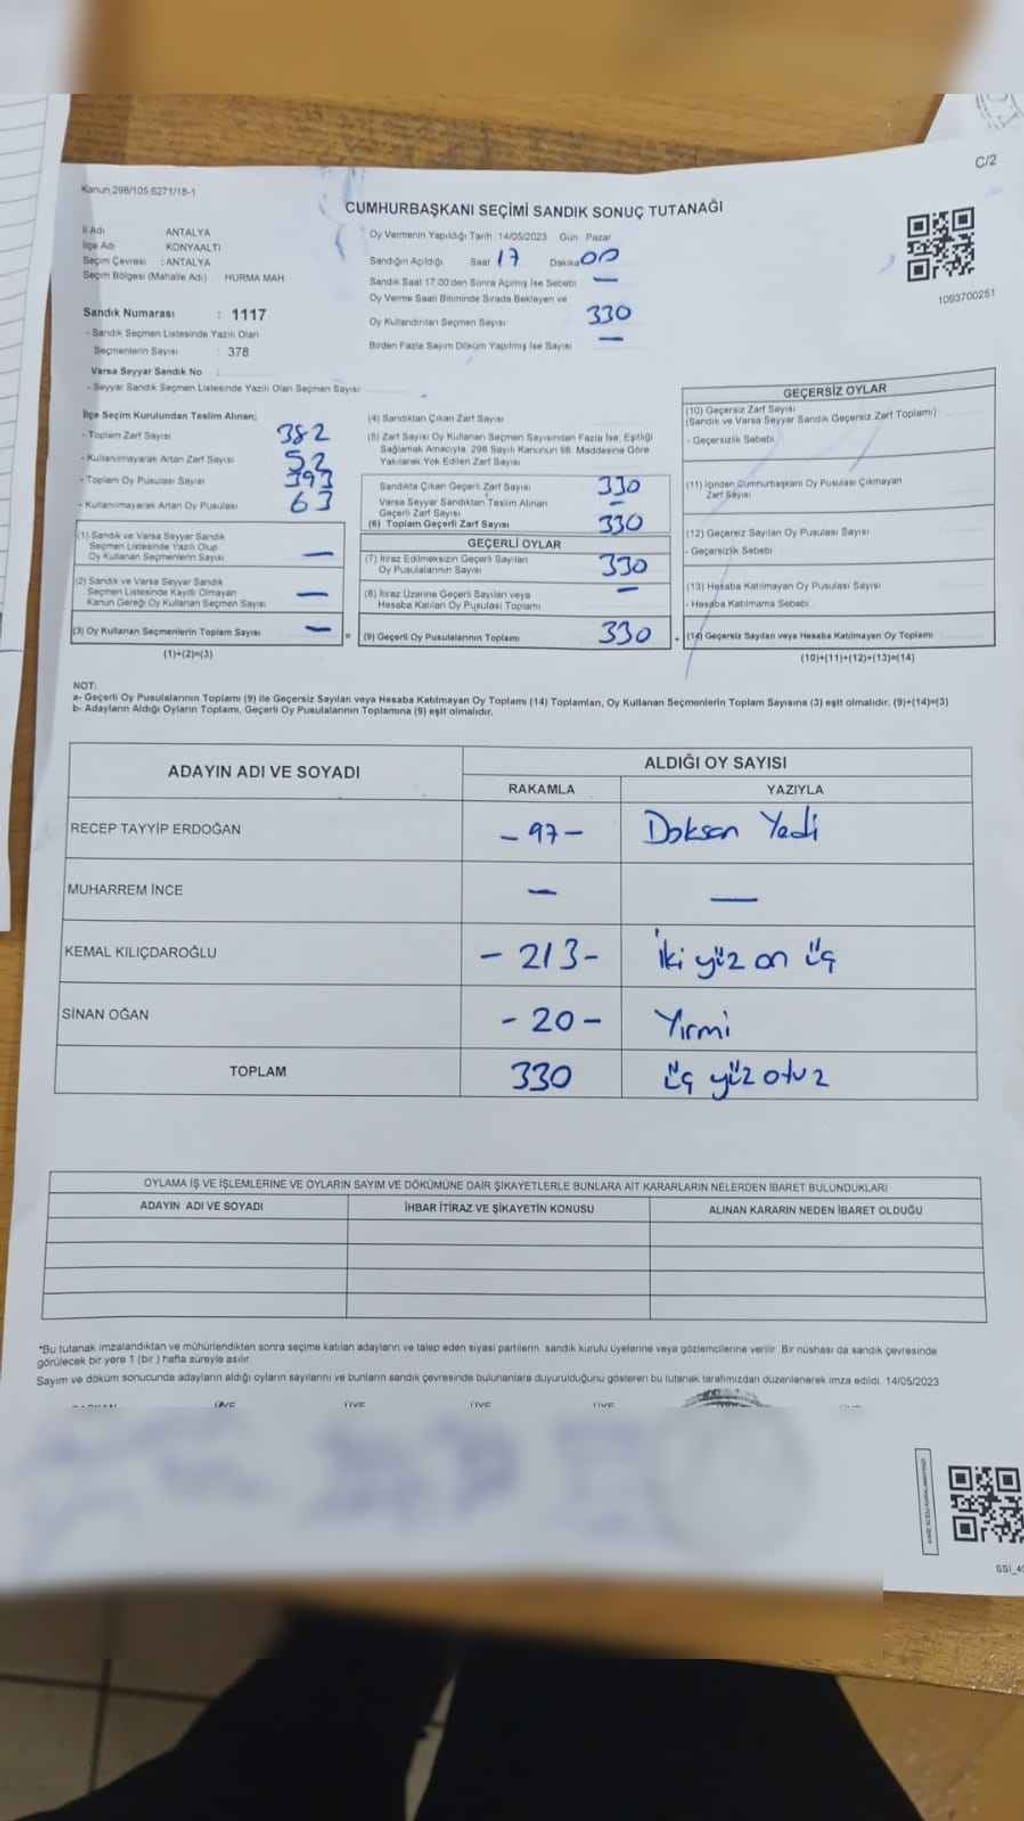 C/2
Kanun 298/105 6271/18-1
CUMHURBAŞKANI SEÇİMİ SANDIK SONUÇ TUTANAĞI
1093700251
İl Adı ANTALYA
İlçe Adı KONYAALTI
Seçim Çevresi : ANTALYA
Seçim Bölgesi (Mahalle Adı) HURMA MAH
Sandık Numarası : 1117
- Sandık Seçmen Listesinde Yazılı Olan
Seçmenlerin Sayısı : 378
Varsa Seyyar Sandık No
- Seyyar Sandık Seçmen Listesinde Yazılı Olan Seçmen Sayısı
Oy Vermenin Yapıldığı Tarih 14/05/2023 Gün Pazar
Sandığın Açıldığı Saat 17 Dakika 00
Sandık Saat 17.00'den Sonra Açılmış İse Sebebi —
Oy Verme Saati Bitiminde Sırada Bekleyen ve
Oy Kullandırılan Seçmen Sayısı 330
Birden Fazla Sayım Döküm Yapılmış İse Sayısı —
İlçe Seçim Kurulundan Teslim Alınan;
- Toplam Zarf Sayısı 382
- Kullanılmayarak Artan Zarf Sayısı 52
- Toplam Oy Pusulası Sayısı 393
- Kullanılmayarak Artan Oy Pusulası 63
(1) Sandık ve Varsa Seyyar Sandık
Seçmen Listesinde Yazılı Olup
Oy Kullanan Seçmenlerin Sayısı —
(2) Sandık ve Varsa Seyyar Sandık
Seçmen Listesinde Kayıtlı Olmayan
Kanun Gereği Oy Kullanan Seçmen Sayısı —
(3) Oy Kullanan Seçmenlerin Toplam Sayısı —
(1)+(2)=(3)
(4) Sandıktan Çıkan Zarf Sayısı
(5) Zarf Sayısı Oy Kullanan Seçmen Sayısından Fazla İse, Eşitliği
Sağlamak Amacıyla, 298 Sayılı Kanunun 98. Maddesine Göre
Yakılarak Yok Edilen Zarf Sayısı
Sandıkta Çıkan Geçerli Zarf Sayısı 330
Varsa Seyyar Sandıktan Teslim Alınan
Geçerli Zarf Sayısı —
(6) Toplam Geçerli Zarf Sayısı 330
GEÇERLİ OYLAR
(7) İtiraz Edilmeksizin Geçerli Sayılan
Oy Pusulalarının Sayısı 330
(8) İtiraz Üzerine Geçerli Sayılan veya
Hesaba Katılan Oy Pusulası Toplamı —
(9) Geçerli Oy Pusulalarının Toplamı 330
GEÇERSİZ OYLAR
(10) Geçersiz Zarf Sayısı
(Sandık ve Varsa Seyyar Sandık Geçersiz Zarf Toplamı)
- Geçersizlik Sebebi
(11) İçinden Cumhurbaşkanı Oy Pusulası Çıkmayan
Zarf Sayısı
(12) Geçersiz Sayılan Oy Pusulası Sayısı
- Geçersizlik Sebebi
(13) Hesaba Katılmayan Oy Pusulası Sayısı
- Hesaba Katılmama Sebebi
(14) Geçersiz Sayılan veya Hesaba Katılmayan Oy Toplamı
(10)+(11)+(12)+(13)=(14)
NOT:
a- Geçerli Oy Pusulalarının Toplamı (9) ile Geçersiz Sayılan veya Hesaba Katılmayan Oy Toplamı (14) Toplamları, Oy Kullanan Seçmenlerin Toplam Sayısına (3) eşit olmalıdır. (9)+(14)=(3)
b- Adayların Aldığı Oyların Toplamı, Geçerli Oy Pusulalarının Toplamına (9) eşit olmalıdır.
ADAYIN ADI VE SOYADI ALDIĞI OY SAYISI
RAKAMLA YAZIYLA
RECEP TAYYİP ERDOĞAN - 97 - Doksan Yedi
MUHARREM İNCE — —
KEMAL KILIÇDAROĞLU - 213 - İki yüz on üç
SİNAN OĞAN - 20 - Yirmi
TOPLAM 330 üç yüz otuz
OYLAMA İŞ VE İŞLEMLERİNE VE OYLARIN SAYIM VE DÖKÜMÜNE DAİR ŞİKAYETLERLE BUNLARA AİT KARARLARIN NELERDEN İBARET BULUNDUKLARI
ADAYIN ADI VE SOYADI İHBAR İTİRAZ VE ŞİKAYETİN KONUSU ALINAN KARARIN NEDEN İBARET OLDUĞU
*Bu tutanak imzalandıktan ve mühürlendikten sonra seçime katılan adayların ve talep eden siyasi partilerin, sandık kurulu üyelerine veya gözlemcilerine verilir. Bir nüshası da sandık çevresinde
görülecek bir yere 1 (bir) hafta süreyle asılır.
Sayım ve döküm sonucunda adayların aldığı oyların sayılarını ve bunların sandık çevresinde bulunanlara duyurulduğunu gösteren bu tutanak tarafımızdan düzenlenerek imza edildi. 14/05/2023
ÜYE ÜYE ÜYE ÜYE